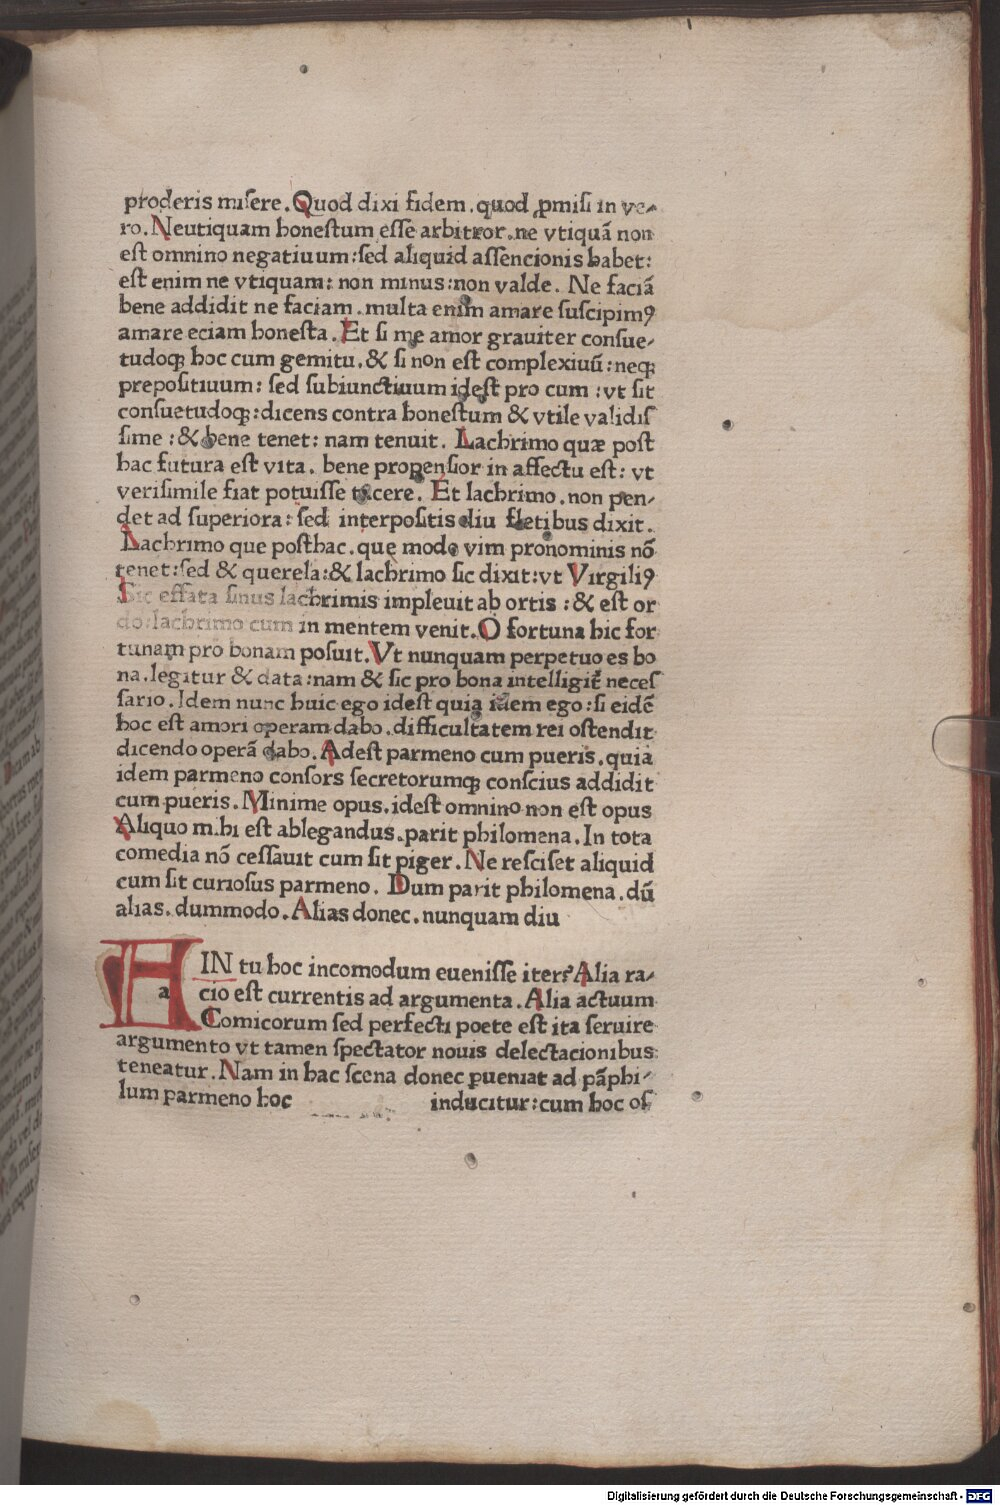 proderis miſere. Quod dixi fidem. quod ꝓmiſi in ve-
ro. Neutiquam honeſtum eſſe arbitror. ne vtiquā non
eſt omnino negatiuum: ſed aliquid aſſencionis habet:
eſt enim ne vtiquam: non minus: non valde. Ne faciā
bene addidit ne faciam. multa enim amare ſuſcipimꝰ
amare eciam honeſta. Et ſi me amor grauiter conſue-
tudoqꝫ hoc cum gemitu. & ſi non eſt complexiuū: neqꝫ
prepoſitiuum: ſed ſubiunctiuum ideſt pro cum: vt ſit
conſuetudoqꝫ: dicens contra honeſtum & vtile validiſ
ſime: & bene tenet: nam tenuit. Lachrimo quæ poſt
hac futura eſt vita. bene propenſior in affectu eſt: vt
veriſimile fiat potuiſſe tacere. Et lachrimo. non pen-
det ad ſuperiora: ſed interpoſitis diu fletibus dixit.
Lachrimo que poſthac. que modo vim pronominis nō
tenet: ſed & querela: & lachrimo ſic dixit: vt Virgiliꝰ
Sic effata ſinus lachrimis impleuit ab ortis: & eſt or
do: lachrimo cum in mentem venit. O fortuna hic for
tunam pro bonam poſuit. Vt nunquam perpetuo es bo
na. legitur & data: nam & ſic pro bona intelligit̄ neceſ
ſario. Idem nunc huic ego ideſt quia idem ego: ſi eidē
hoc eſt amori operam dabo. difficultatem rei oſtendit
dicendo operā dabo. Adeſt parmeno cum pueris. quia
idem parmeno conſors ſecretorumqꝫ conſcius addidit
cum pueris. Minime opus. ideſt omnino non eſt opus
Aliquo mihi eſt ablegandus. parit philomena. In tota
comedia nō ceſſauit cum ſit piger. Ne reſciſet aliquid
cum ſit curioſus parmeno. Dum parit philomena. dū
alias. dummodo. Alias donec. nunquam diu
a IN tu hoc incomodum eueniſſe iter? Alia ra-
cio eſt currentis ad argumenta. Alia actuum
Comicorum ſed perfecti poete eſt ita ſeruire
argumento vt tamen ſpectator nouis delectacionibus
teneatur. Nam in hac ſcena donec ꝑueniat ad pāphi-
lum parmeno hoc inducitur: cum hoc oſ
Digitalisierung gefördert durch die Deutsche Forschungsgemeinschaft - DFG